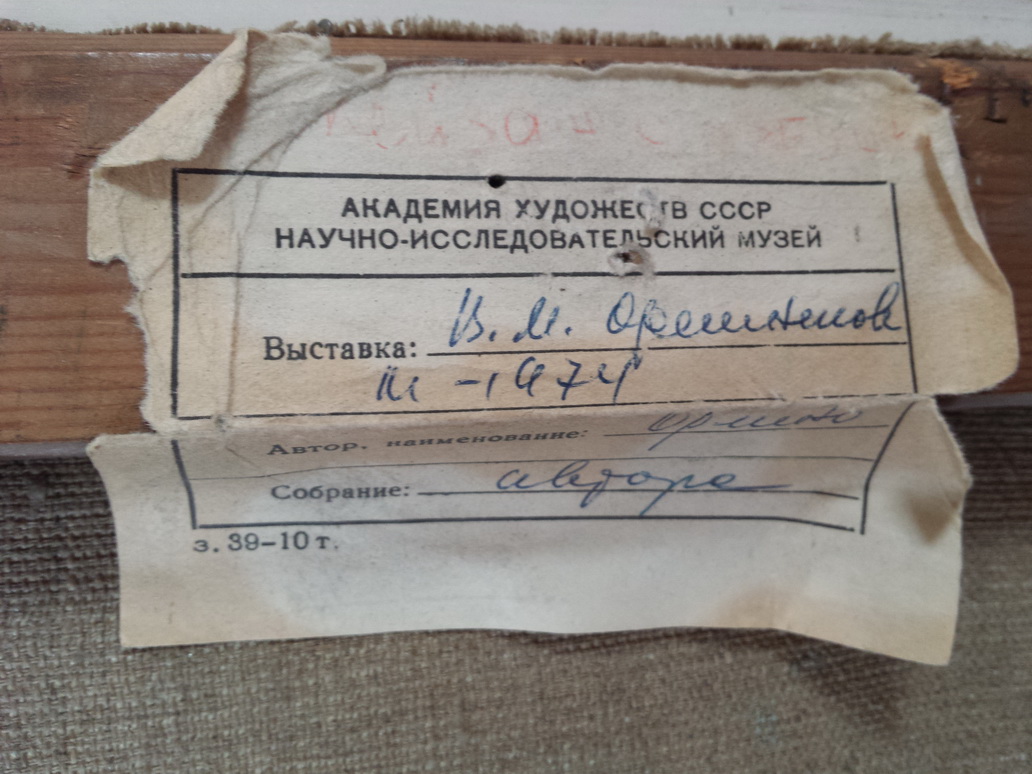 АКАДЕМИЯ ХУДОЖЕСТВ СССР
НАУЧНО-ИССЛЕДОВАТЕЛЬСКИЙ МУЗЕЙ
Выставка: В. М. Орешников
III - 1974
Автор, наименование:
Собрание: автора
з. 39-10 т.